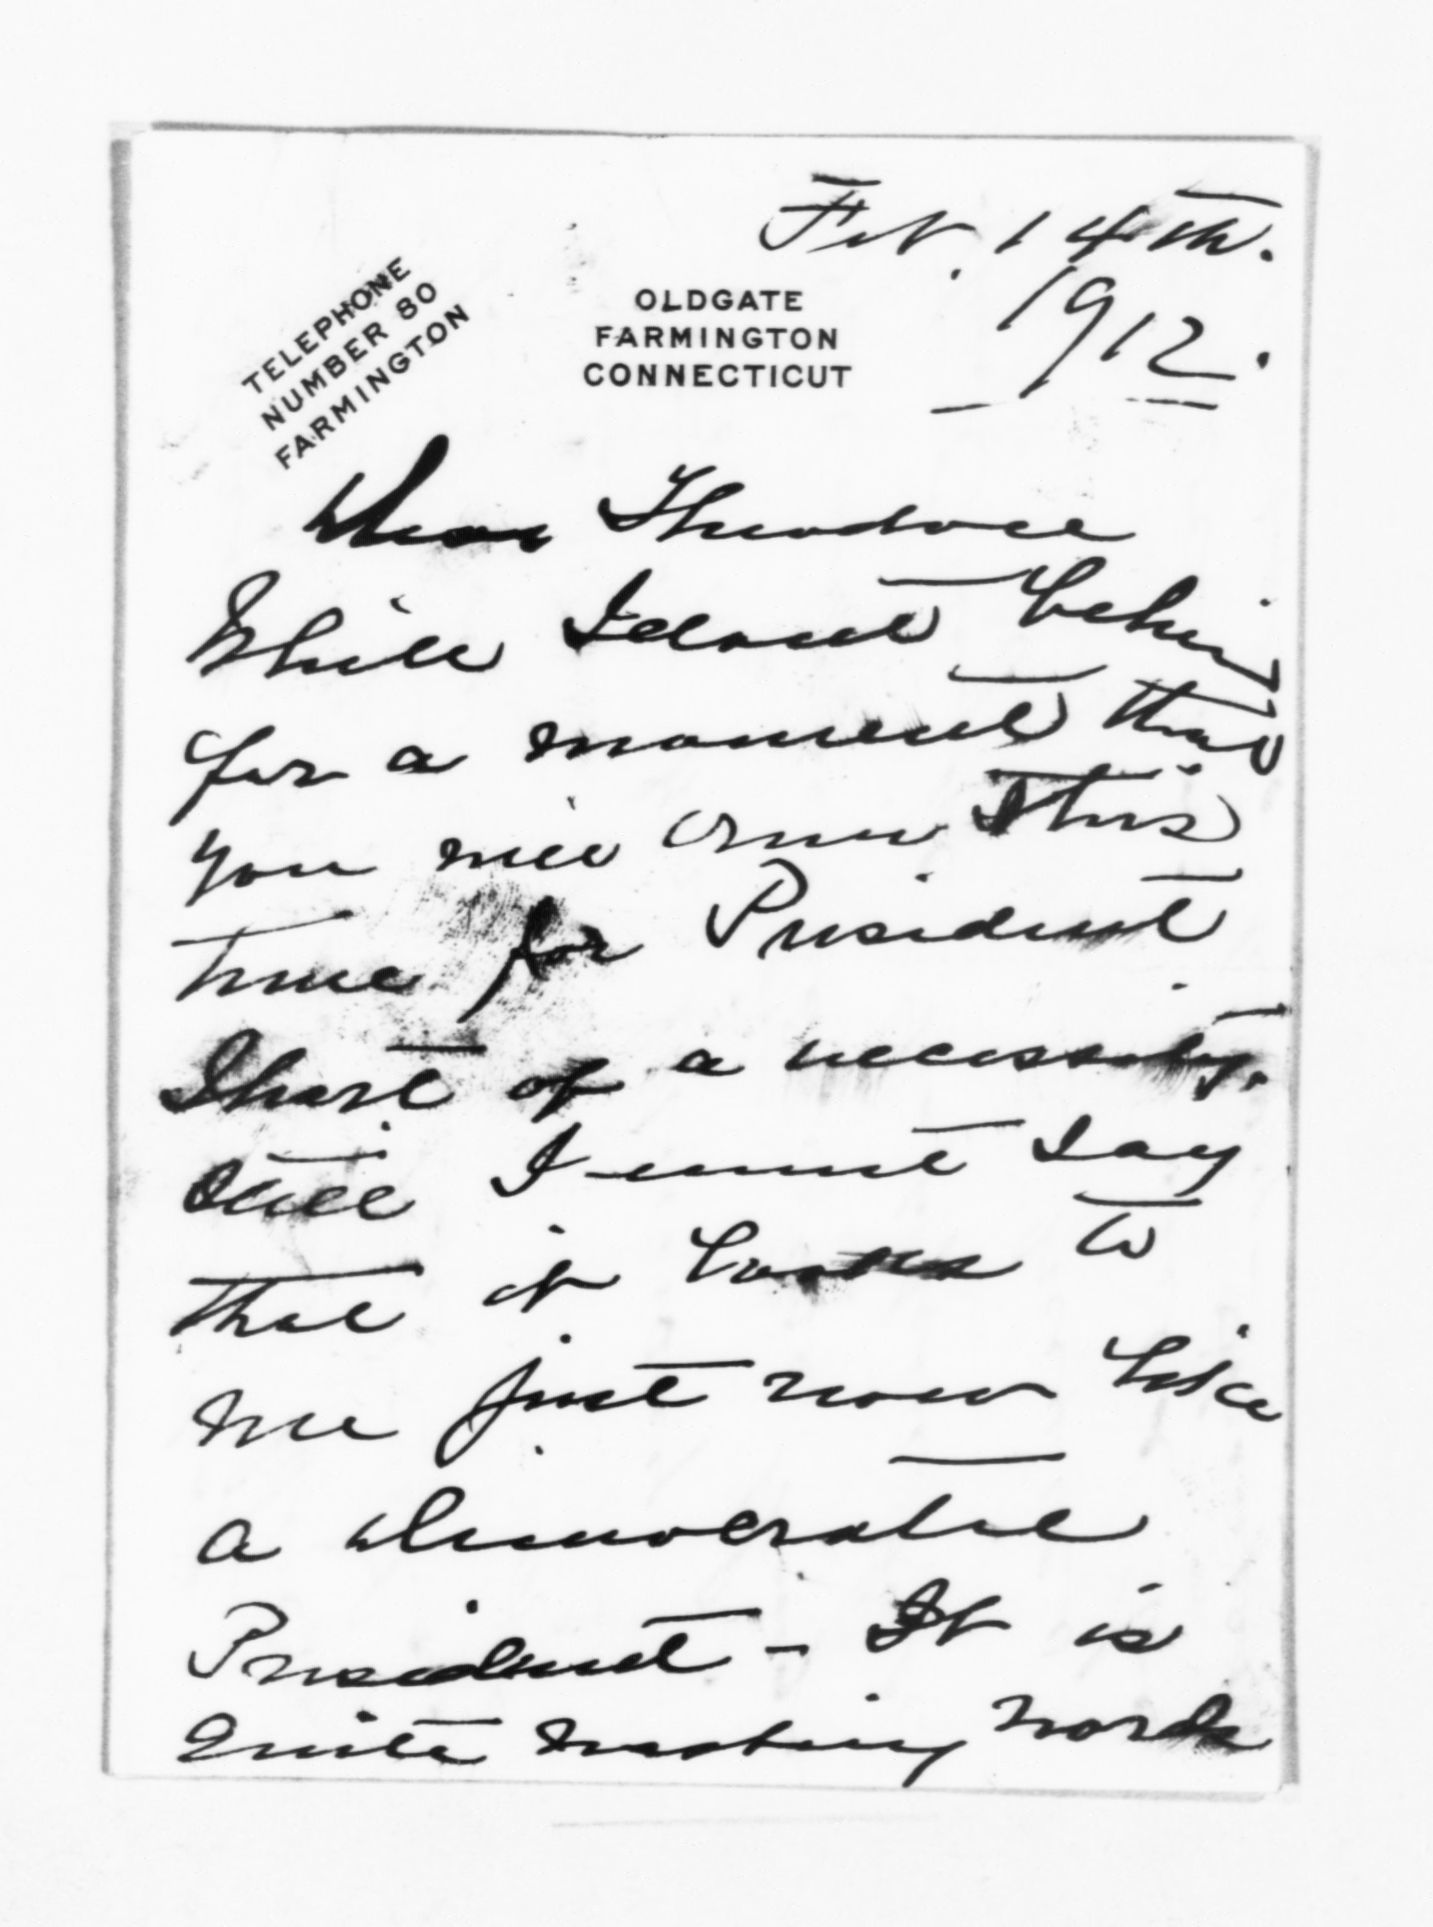 Feb. 14th.
1912.
TELEPHONE
NUMBER 80
FARMINGTON
OLDGATE
FARMINGTON
CONNECTICUT
Dear Theodore
While I dont believe
for a moment that
you will run this
time for President
Short of a necessity.
Still I must say
that it looks to
me just now like
a Democratic
President - It is
Quite words